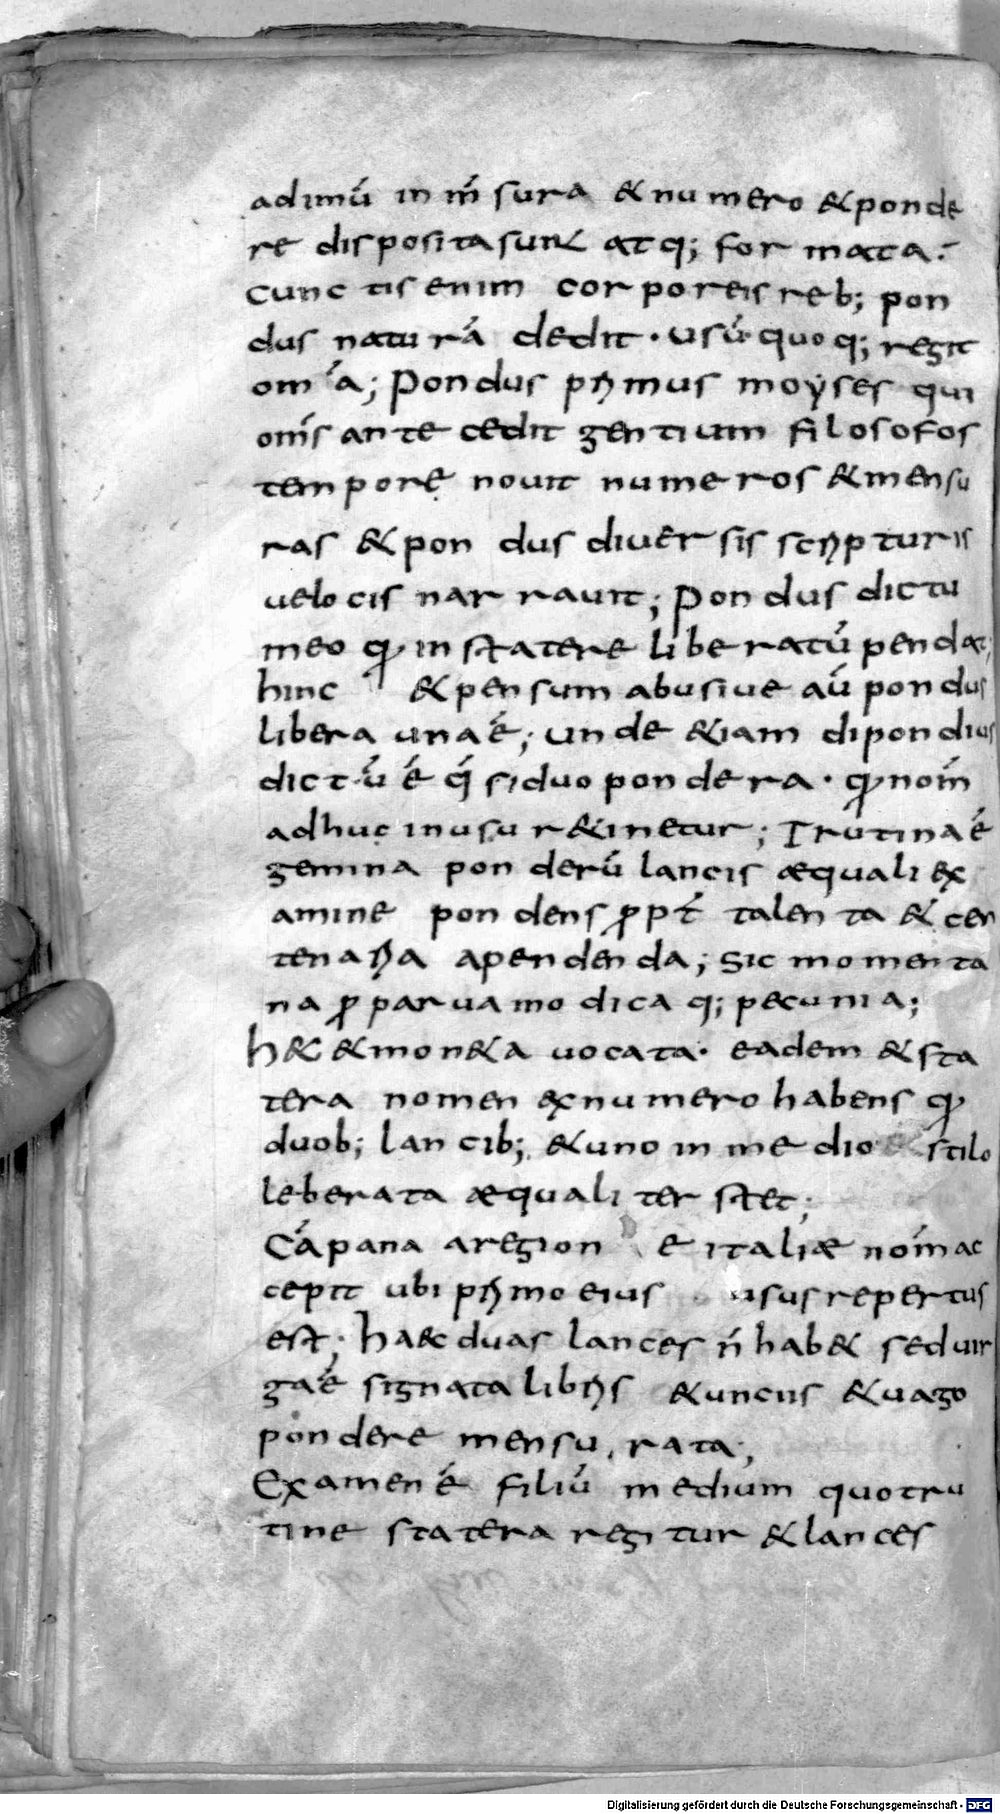 adimū in m̄ sura & numero & ponde
re disposita sunt atq; for mata.
Cunc tis enim cor poreis reb; pon
dus naturā dedit. usū quoq; regit
om̄a; Pondus primus moyses qui
om̄s ante cedit gentium filosofos
tempore nouit numeros & mensu
ras & pon dus diuer sis scrip turis
uelo cis nar rauit; Pon dus dictu
meo qđ in statere li be ratū pendat;
hinc & pen sum abusiue aū pon dus
libera una ē; un de &iam dipon dius
dictū ē q̄ si duo pon de ra. qđ nom̄
adhuc in usu r&inetur; Trutina ē
gemina pon derū lancis æquali ex
amine pon dens ꝓpt̄ talen ta & cen
tenaria apenden da; Sic momen ta
na ꝓ parua modica q; pecunia;
h& & mon&a uocata. eadem & sta
tera nomen ex numero habens qđ
duob; lan cib; & uno in me dio stilo
leberata æquali ter stet;
Cāpana aregion e italiæ nom̄ ac
cepit ubi primo eius usus repertus
est; haec duas lances n̄ hab& sed uir
ga ē signata libris & unciis & uago
pon dere mensu rata;
Examen ē filiū medium quo tru
tine statera regi tur & lances
Digitalisierung gefördert durch die Deutsche Forschungsgemeinschaft - DFG